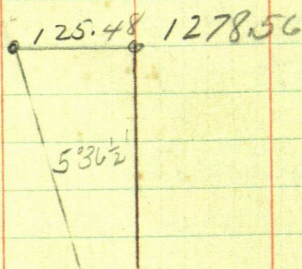 125.48 1278.56
5°36½'